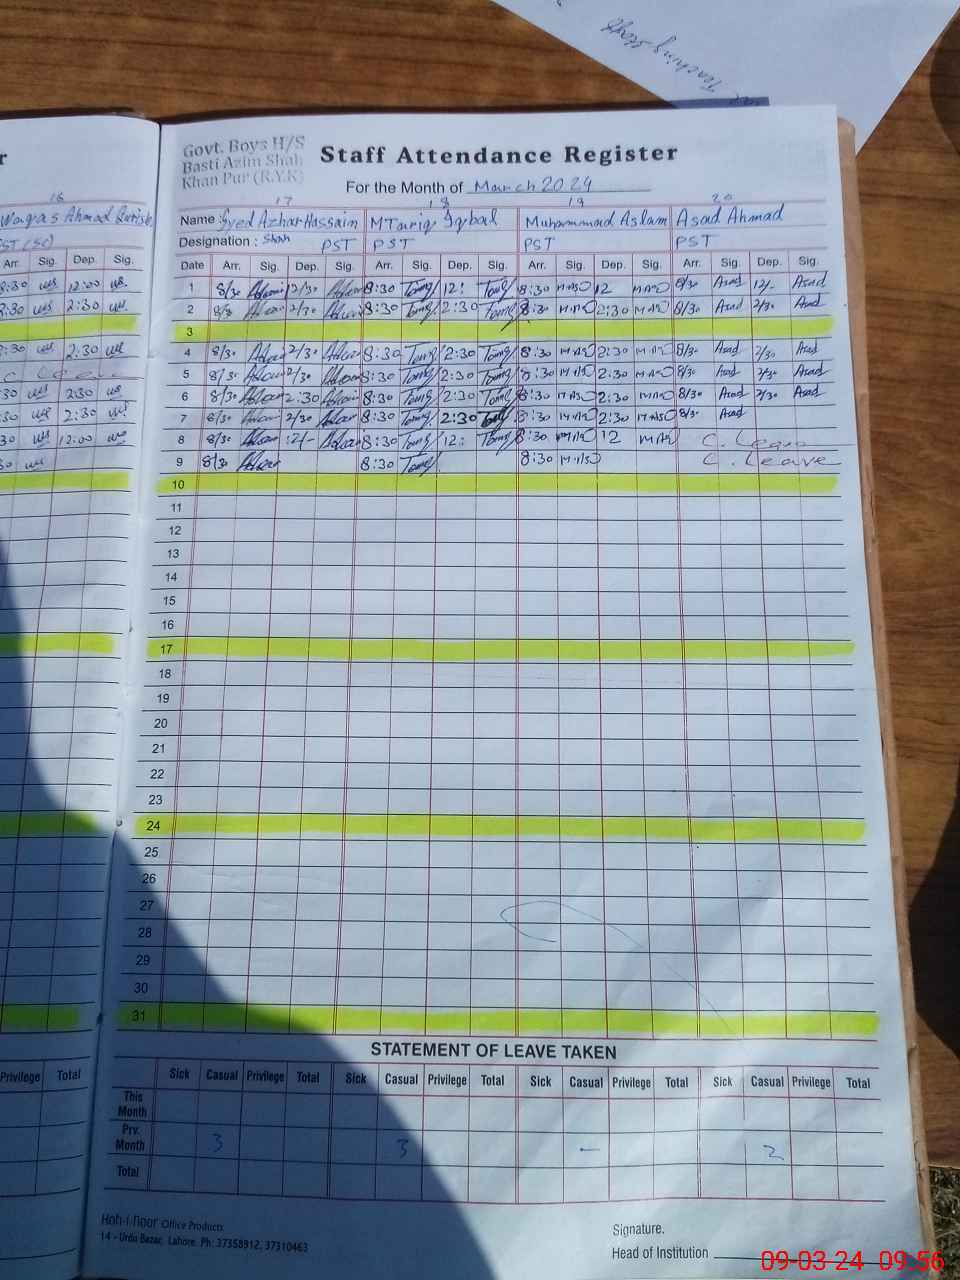 Teaching Staff
Govt. Boys H/S
Basti Azim Shah
Khan Pur (R.Y.K)
Staff Attendance Register
For the Month of March 2024
16 17 18 19 20
Waqas Ahmad Name : Syed Azhar Hassain M Tariq Iqbal Muhammad Aslam Asad Ahmad
PST (SC) Designation : Shah PST PST PST PST
Arr. Sig. Dep. Sig. Date Arr. Sig. Dep. Sig. Arr. Sig. Dep. Sig. Arr. Sig. Dep. Sig. Arr. Sig. Dep. Sig.
8:30 12:00 1 8/30 12/30 8:30 12: 8:30 12 8/30 Asad 12/- Asad
2:30 2 8/30 2/30 8:30 2:30 8:30 2:30 8/30 Asad 2/30 Asad
3
2:30 4 8/30 2/30 8:30 2:30 8:30 2:30 8/30 Asad 2/30 Asad
C Leave 5 8/30 2/30 8:30 2:30 8:30 2:30 8/30 Asad 2/30 Asad
30 2:30 6 8/30 2:30 8:30 2:30 8:30 2:30 8/30 Asad 2/30 Asad
30 2:30 7 8/30 2/30 8:30 2:30 8:30 2:30 8/30 Asad
30 12:00 8 8/30 12/- 8:30 12: 8:30 12 C. Leave
30 9 8/30 8:30 8:30 C. Leave
10
11
12
13
14
15
16
17
18
19
20
21
22
23
24
25
26
27
28
29
30
31
STATEMENT OF LEAVE TAKEN
Privilege Total Sick Casual Privilege Total Sick Casual Privilege Total Sick Casual Privilege Total Sick Casual Privilege Total
This Month
Prv. Month 3 3 - 2
Total
Hoh-i-noor Office Products
14 - Urdu Bazar, Lahore. Ph: 37358912, 37310463
Signature.
Head of Institution
09-03-24 09:56